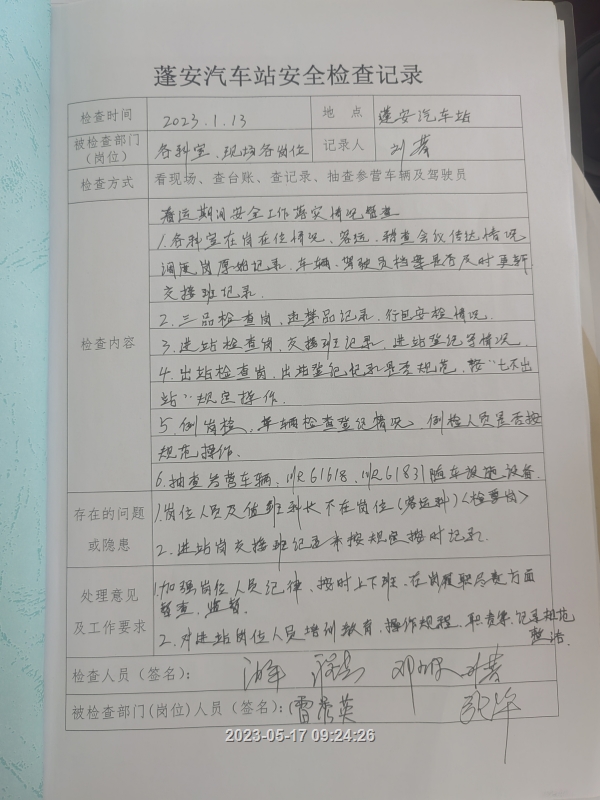 蓬安汽车站安全检查记录
检查时间 2023.1.13 地 点 蓬安汽车站
被检查部门（岗位） 各科室、现场各岗位 记录人
检查方式 看现场、查台账、查记录、抽查参营车辆及驾驶员
检查内容
春运期间安全工作落实情况督查
1.各科室在岗在位情况、客运、稽查会议传达情况
调度岗原始记录、车辆、驾驶员档案是否及时更新
交接班记录.
2.三品检查岗、违禁品记录、行包安检情况.
3.进站检查岗、交接班记录、进站登记等情况.
4.出站检查岗、出站登记记录是否规范，按“七不出
站”规定操作.
5.例岗检，车辆检查登记情况、例检人员是否按
规范操作.
6.抽查参营车辆，川R61618、川R61831随车设施设备.
存在的问题
或隐患
1.岗位人员及值班科长不在岗位(客运科)<检票岗>
2.进站岗交接班记录未按规定按时记录.
处理意见
及工作要求
1.加强岗位人员纪律、按时上下班、在岗履职尽责方面
督查、监督.
2.对进站岗位人员培训教育、操作规程、职责等、记录规范
整洁.
检查人员（签名）：
被检查部门(岗位)人员（签名）：
2023-05-17 09:24:26